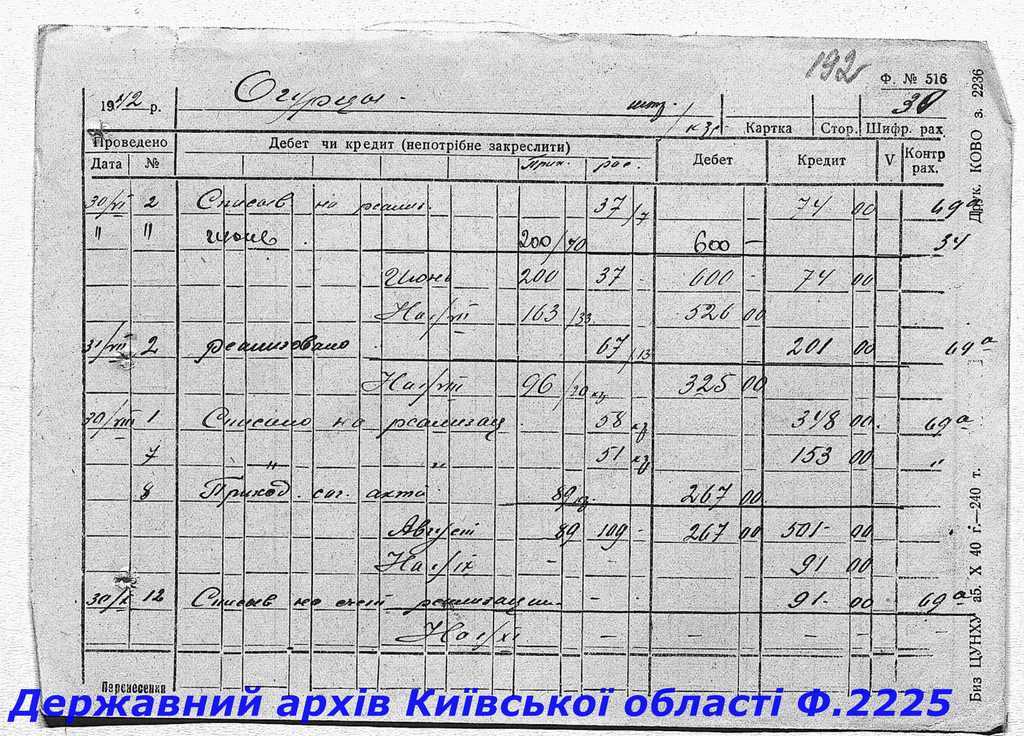 192
Ф. № 516
1942 р. Огурцы. штз. / кзг. Картка Стор. Шифр. рах. 30
Проведено Дебет чи кредит (непотрібне закреслити) Дебет Кредит V Контр рах.
Дата № Прих. рас.
30/VI 2 Списыв на реализ. 37/7 74 00 69а
" " июнь 200/40 600 — 34
Июнь 200 37 600 - 74 00
На 1/VII 163/33 526 00
31/VII 2 реализовано 67/13 201 00 69а
На 1/VIII 96/20 кг 325 00
30/VIII 1 Списано на реализац. 58 кг 348 00 69а
7 " " 51 кг 153 00 "
8 Приход. сог. акта 89 кг. 267 00
Август 89 109 - 267 00 501- 00
На 1/IX - - 91 00
30/X 12 Списыв на счет реализации - - 91- 00 69а
На 1/XI - - - - - -
Перенесення
Биз ЦУНХУ аб. X 40 г.—240 т. Друк. КОВО з. 2236
Державний архів Київської області Ф.2225